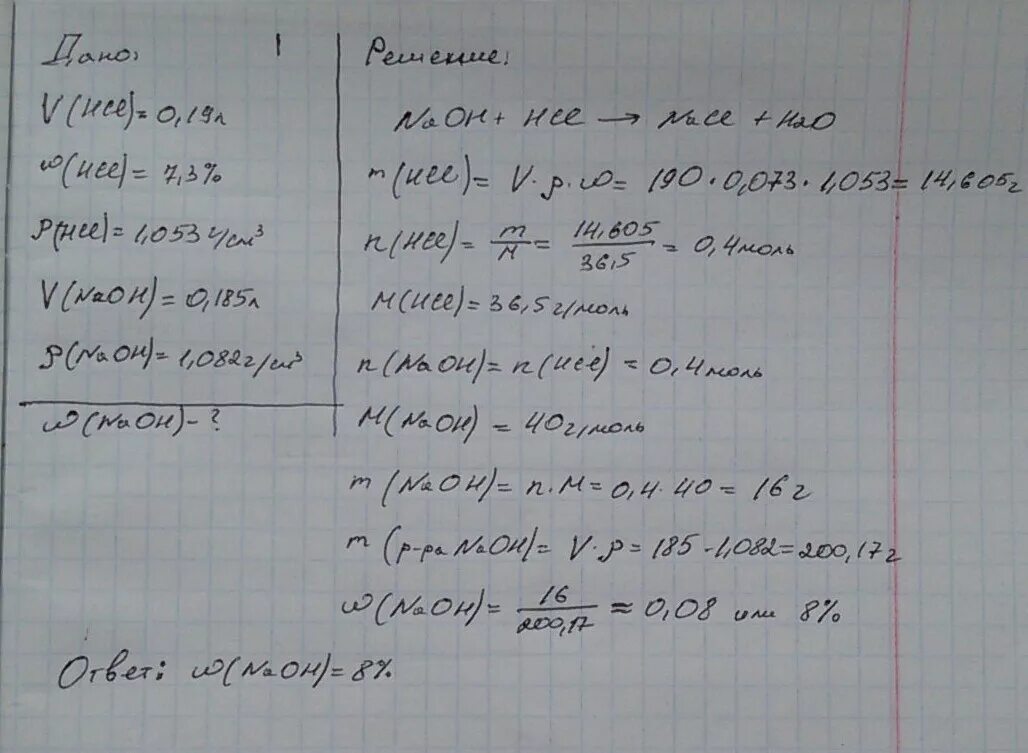 Дано:
V(HCl)=0,19л
ω(HCl)=7,3%
ρ(HCl)=1,053 г/см³
V(NaOH)=0,185л
ρ(NaOH)=1,082 г/см³
ω(NaOH)-?
Решение:
NaOH + HCl → NaCl + H2O
m(HCl)= V·ρ·ω= 190·0,073·1,053= 14,605г
n(HCl)= m/M = 14,605/36,5 = 0,4моль
M(HCl)=36,5г/моль
n(NaOH)= n(HCl) = 0,4моль
M(NaOH) = 40г/моль
m(NaOH)= n·M= 0,4·40= 16г
m(р-ра NaOH)= V·ρ= 185-1,082=200,17г
ω(NaOH)= 16/200,17 ≈ 0,08 или 8%
Ответ: ω(NaOH)=8%